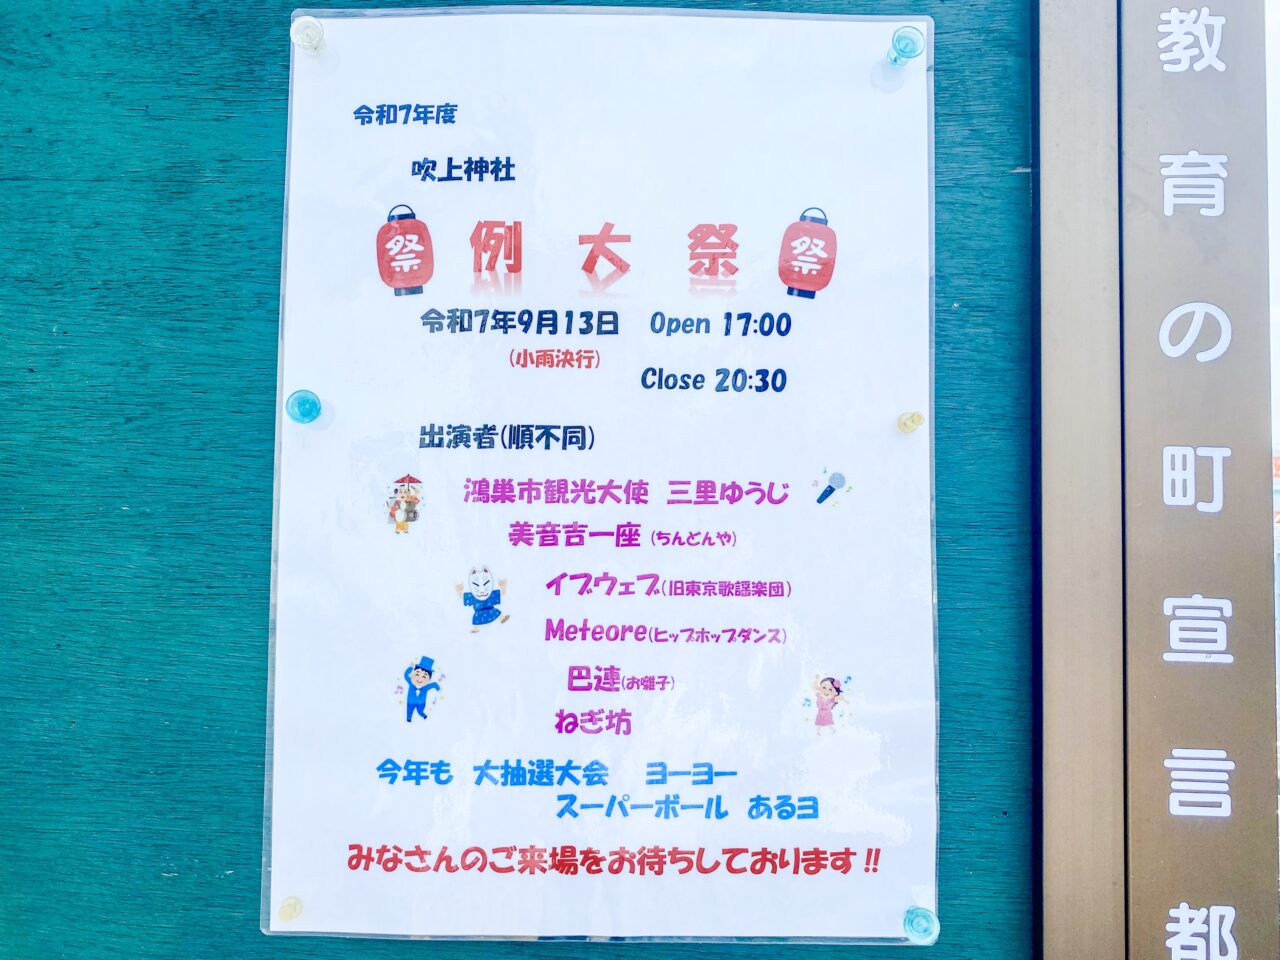 令和7年度
吹上神社
祭 例大祭 祭
令和7年9月13日 Open 17:00
(小雨決行)
Close 20:30
出演者(順不同)
鴻巣市観光大使 三里ゆうじ
美音吉一座 (ちんどんや)
イブウェブ(旧東京歌謡楽団)
Meteore(ヒップホップダンス)
巴連(お囃子)
ねぎ坊
今年も 大抽選大会 ヨーヨー
スーパーボール あるヨ
みなさんのご来場をお待ちしております!!
教育の町宣言都